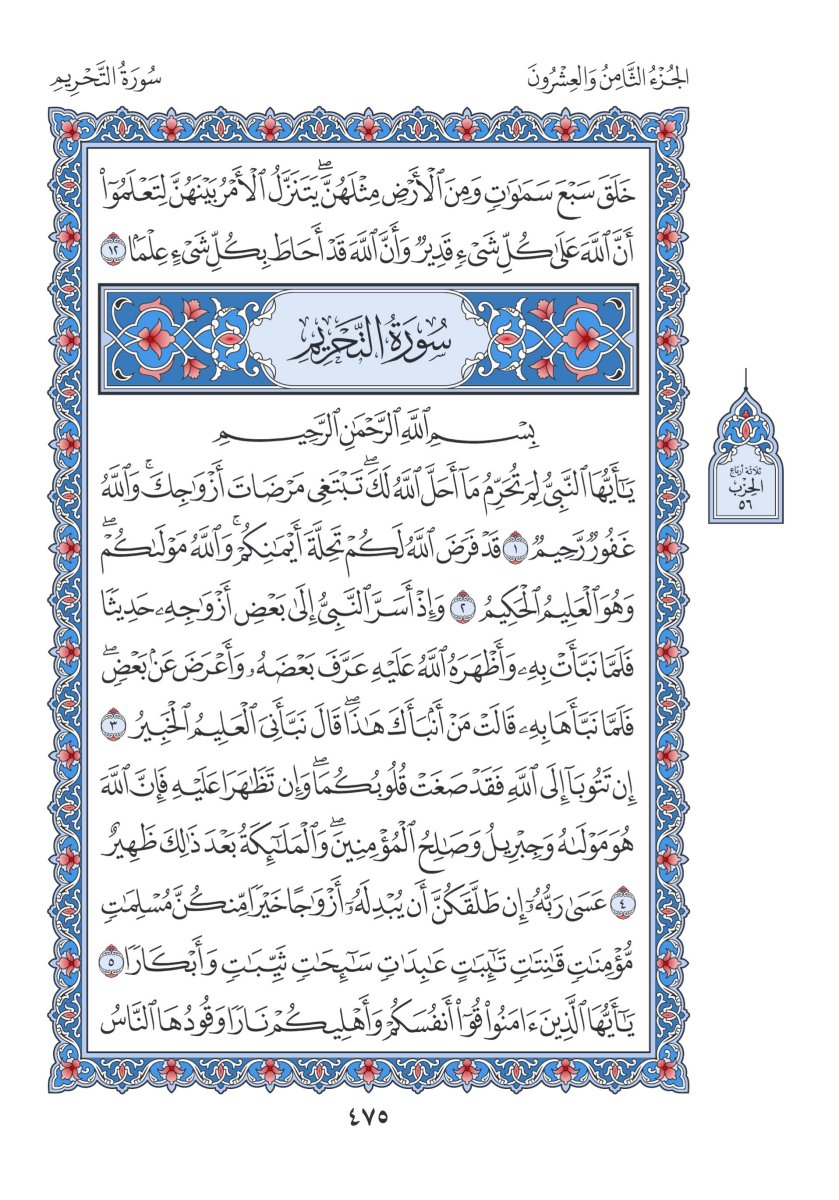 الجُزْءُ الثَّامِنُ وَالعِشْرُونَ
سُورَةُ التَّحْرِيمِ
خَلَقَ سَبْعَ سَمَٰوَٰتٖ وَمِنَ ٱلۡأَرۡضِ مِثۡلَهُنَّۖ يَتَنَزَّلُ ٱلۡأَمۡرُ بَيۡنَهُنَّ لِتَعۡلَمُوٓاْ
أَنَّ ٱللَّهَ عَلَىٰ كُلِّ شَيۡءٖ قَدِيرٞ وَأَنَّ ٱللَّهَ قَدۡ أَحَاطَ بِكُلِّ شَيۡءٍ عِلۡمَۢا ١٢
سُورَةُ التَّحْرِيمِ
بِسۡمِ ٱللَّهِ ٱلرَّحۡمَٰنِ ٱلرَّحِيمِ
يَٰٓأَيُّهَا ٱلنَّبِيُّ لِمَ تُحَرِّمُ مَآ أَحَلَّ ٱللَّهُ لَكَۖ تَبۡتَغِي مَرۡضَاتَ أَزۡوَٰجِكَۚ وَٱللَّهُ
غَفُورٞ رَّحِيمٞ ١ قَدۡ فَرَضَ ٱللَّهُ لَكُمۡ تَحِلَّةَ أَيۡمَٰنِكُمۡۚ وَٱللَّهُ مَوۡلَىٰكُمۡۖ
وَهُوَ ٱلۡعَلِيمُ ٱلۡحَكِيمُ ٢ وَإِذۡ أَسَرَّ ٱلنَّبِيُّ إِلَىٰ بَعۡضِ أَزۡوَٰجِهِۦ حَدِيثٗا
فَلَمَّا نَبَّأَتۡ بِهِۦ وَأَظۡهَرَهُ ٱللَّهُ عَلَيۡهِ عَرَّفَ بَعۡضَهُۥ وَأَعۡرَضَ عَنۢ بَعۡضٖۖ
فَلَمَّا نَبَّأَهَا بِهِۦ قَالَتۡ مَنۡ أَنۢبَأَكَ هَٰذَاۖ قَالَ نَبَّأَنِيَ ٱلۡعَلِيمُ ٱلۡخَبِيرُ ٣
إِن تَتُوبَآ إِلَى ٱللَّهِ فَقَدۡ صَغَتۡ قُلُوبُكُمَاۖ وَإِن تَظَٰهَرَا عَلَيۡهِ فَإِنَّ ٱللَّهَ
هُوَ مَوۡلَىٰهُ وَجِبۡرِيلُ وَصَٰلِحُ ٱلۡمُؤۡمِنِينَۖ وَٱلۡمَلَٰٓئِكَةُ بَعۡدَ ذَٰلِكَ ظَهِيرٌ
٤ عَسَىٰ رَبُّهُۥٓ إِن طَلَّقَكُنَّ أَن يُبۡدِلَهُۥٓ أَزۡوَٰجًا خَيۡرٗا مِّنكُنَّ مُسۡلِمَٰتٖ
مُّؤۡمِنَٰتٖ قَٰنِتَٰتٖ تَٰٓئِبَٰتٍ عَٰبِدَٰتٖ سَٰٓئِحَٰتٖ ثَيِّبَٰتٖ وَأَبۡكَارٗا ٥
يَٰٓأَيُّهَا ٱلَّذِينَ ءَامَنُواْ قُوٓاْ أَنفُسَكُمۡ وَأَهۡلِيكُمۡ نَارٗا وَقُودُهَا ٱلنَّاسُ
ثَلَاثَة أَربَاع
الحِزْب
٥٦
٤٧٥